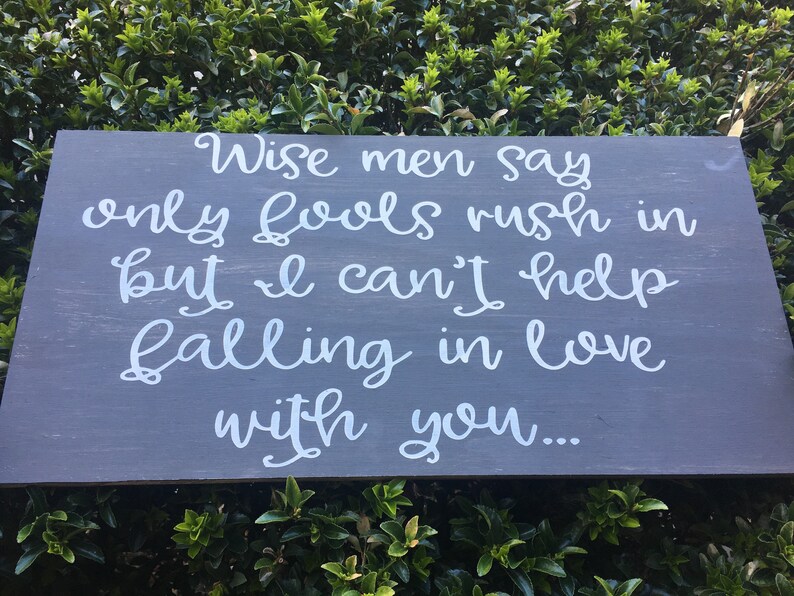 Wise men say
only fools rush in
but I can't help
falling in love
with you...